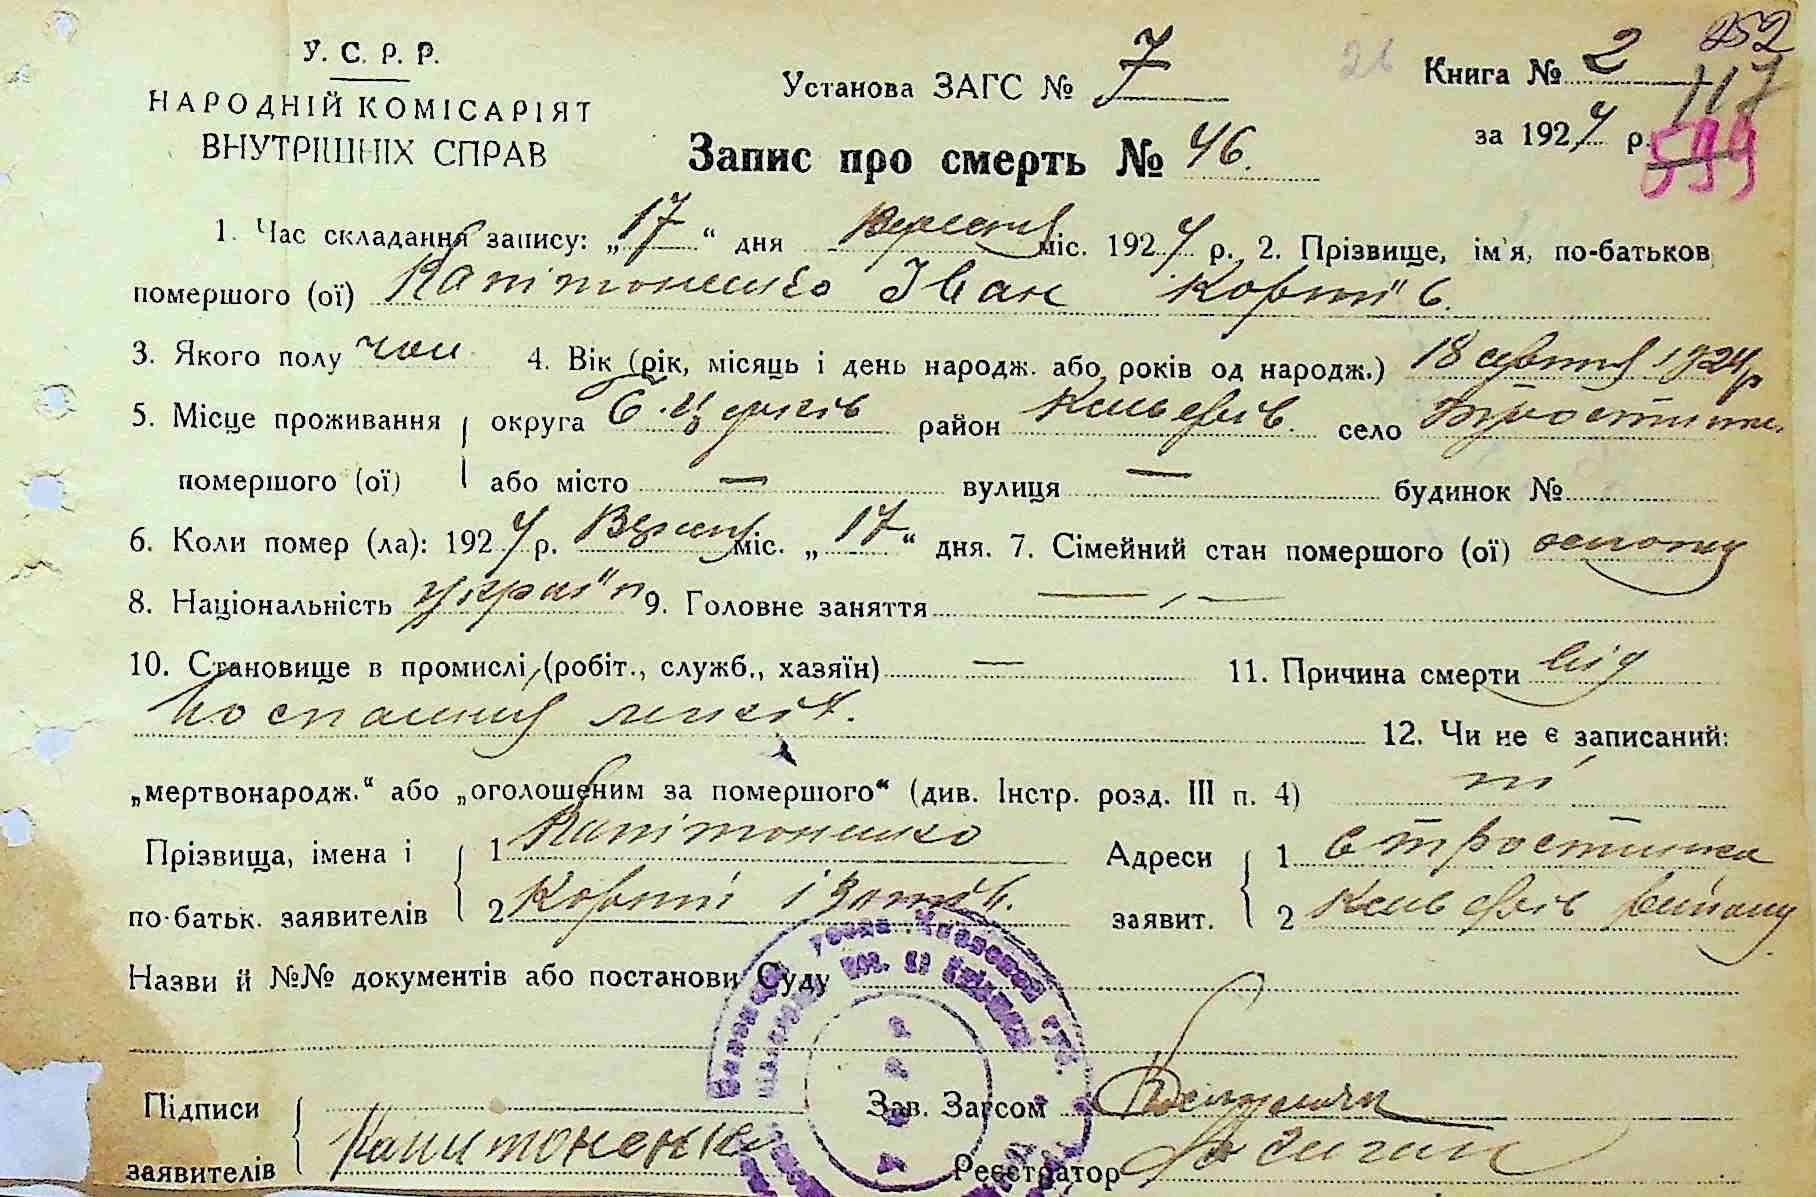 У. С. Р. Р.
НАРОДНІЙ КОМІСАРІЯТ
ВНУТРІШНІХ СПРАВ
Установа ЗАГС № 7
26
Книга № 2
252
117
за 1924 р.
599
Запис про смерть № 46.
1. Час складання запису: „17“ дня Вересня міс. 1924 р. 2. Прізвище, ім'я, по-батьков
помершого (ої) Капітоненко Іван Корнїїв.
3. Якого полу чол. 4. Вік (рік, місяць і день народж. або років од народж.) 18 серпня 1924 р
5. Місце проживання округа Б. Церків район Кищ село Тростинк.
помершого (ої) або місто — вулиця — будинок №
6. Коли помер (ла): 1924 р. Вересня міс. „17“ дня. 7. Сімейний стан помершого (ої)
8. Національність україн 9. Головне заняття —„—
10. Становище в промислі (робіт., служб., хазяїн) — 11. Причина смерти від
воспалення легків.
12. Чи не є записаний:
„мертвонародж.“ або „оголошеним за помершого“ (див. Інстр. розд. III п. 4) ні
Прізвища, імена і 1 Капітоненко Адреси 1 с Тростинка
по-батьк. заявителів 2 Корній Ізотів. заявит. 2 району
Назви й №№ документів або постанови Суду
Підписи
заявителів Капитоненко
Зав. Загсом
Реєстратор